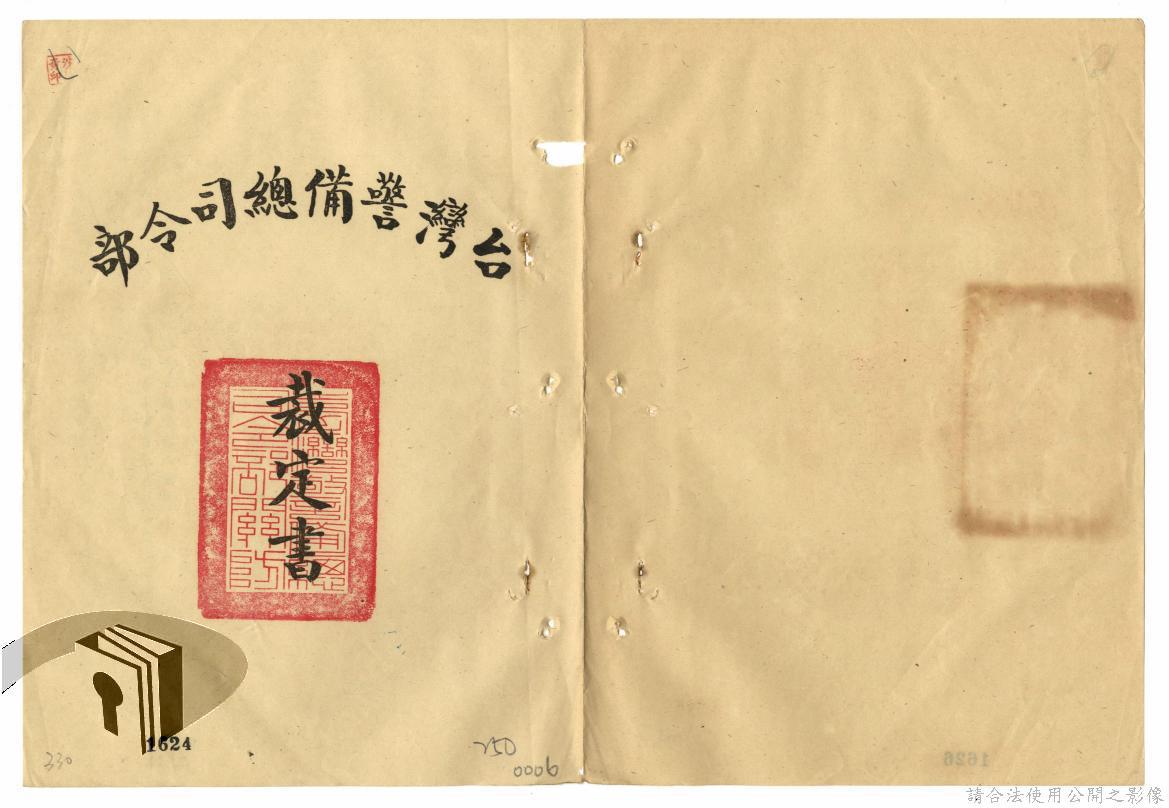 台灣警備總司令部
裁定書
1624
330
250
0006
1626
請合法使用公開之影像